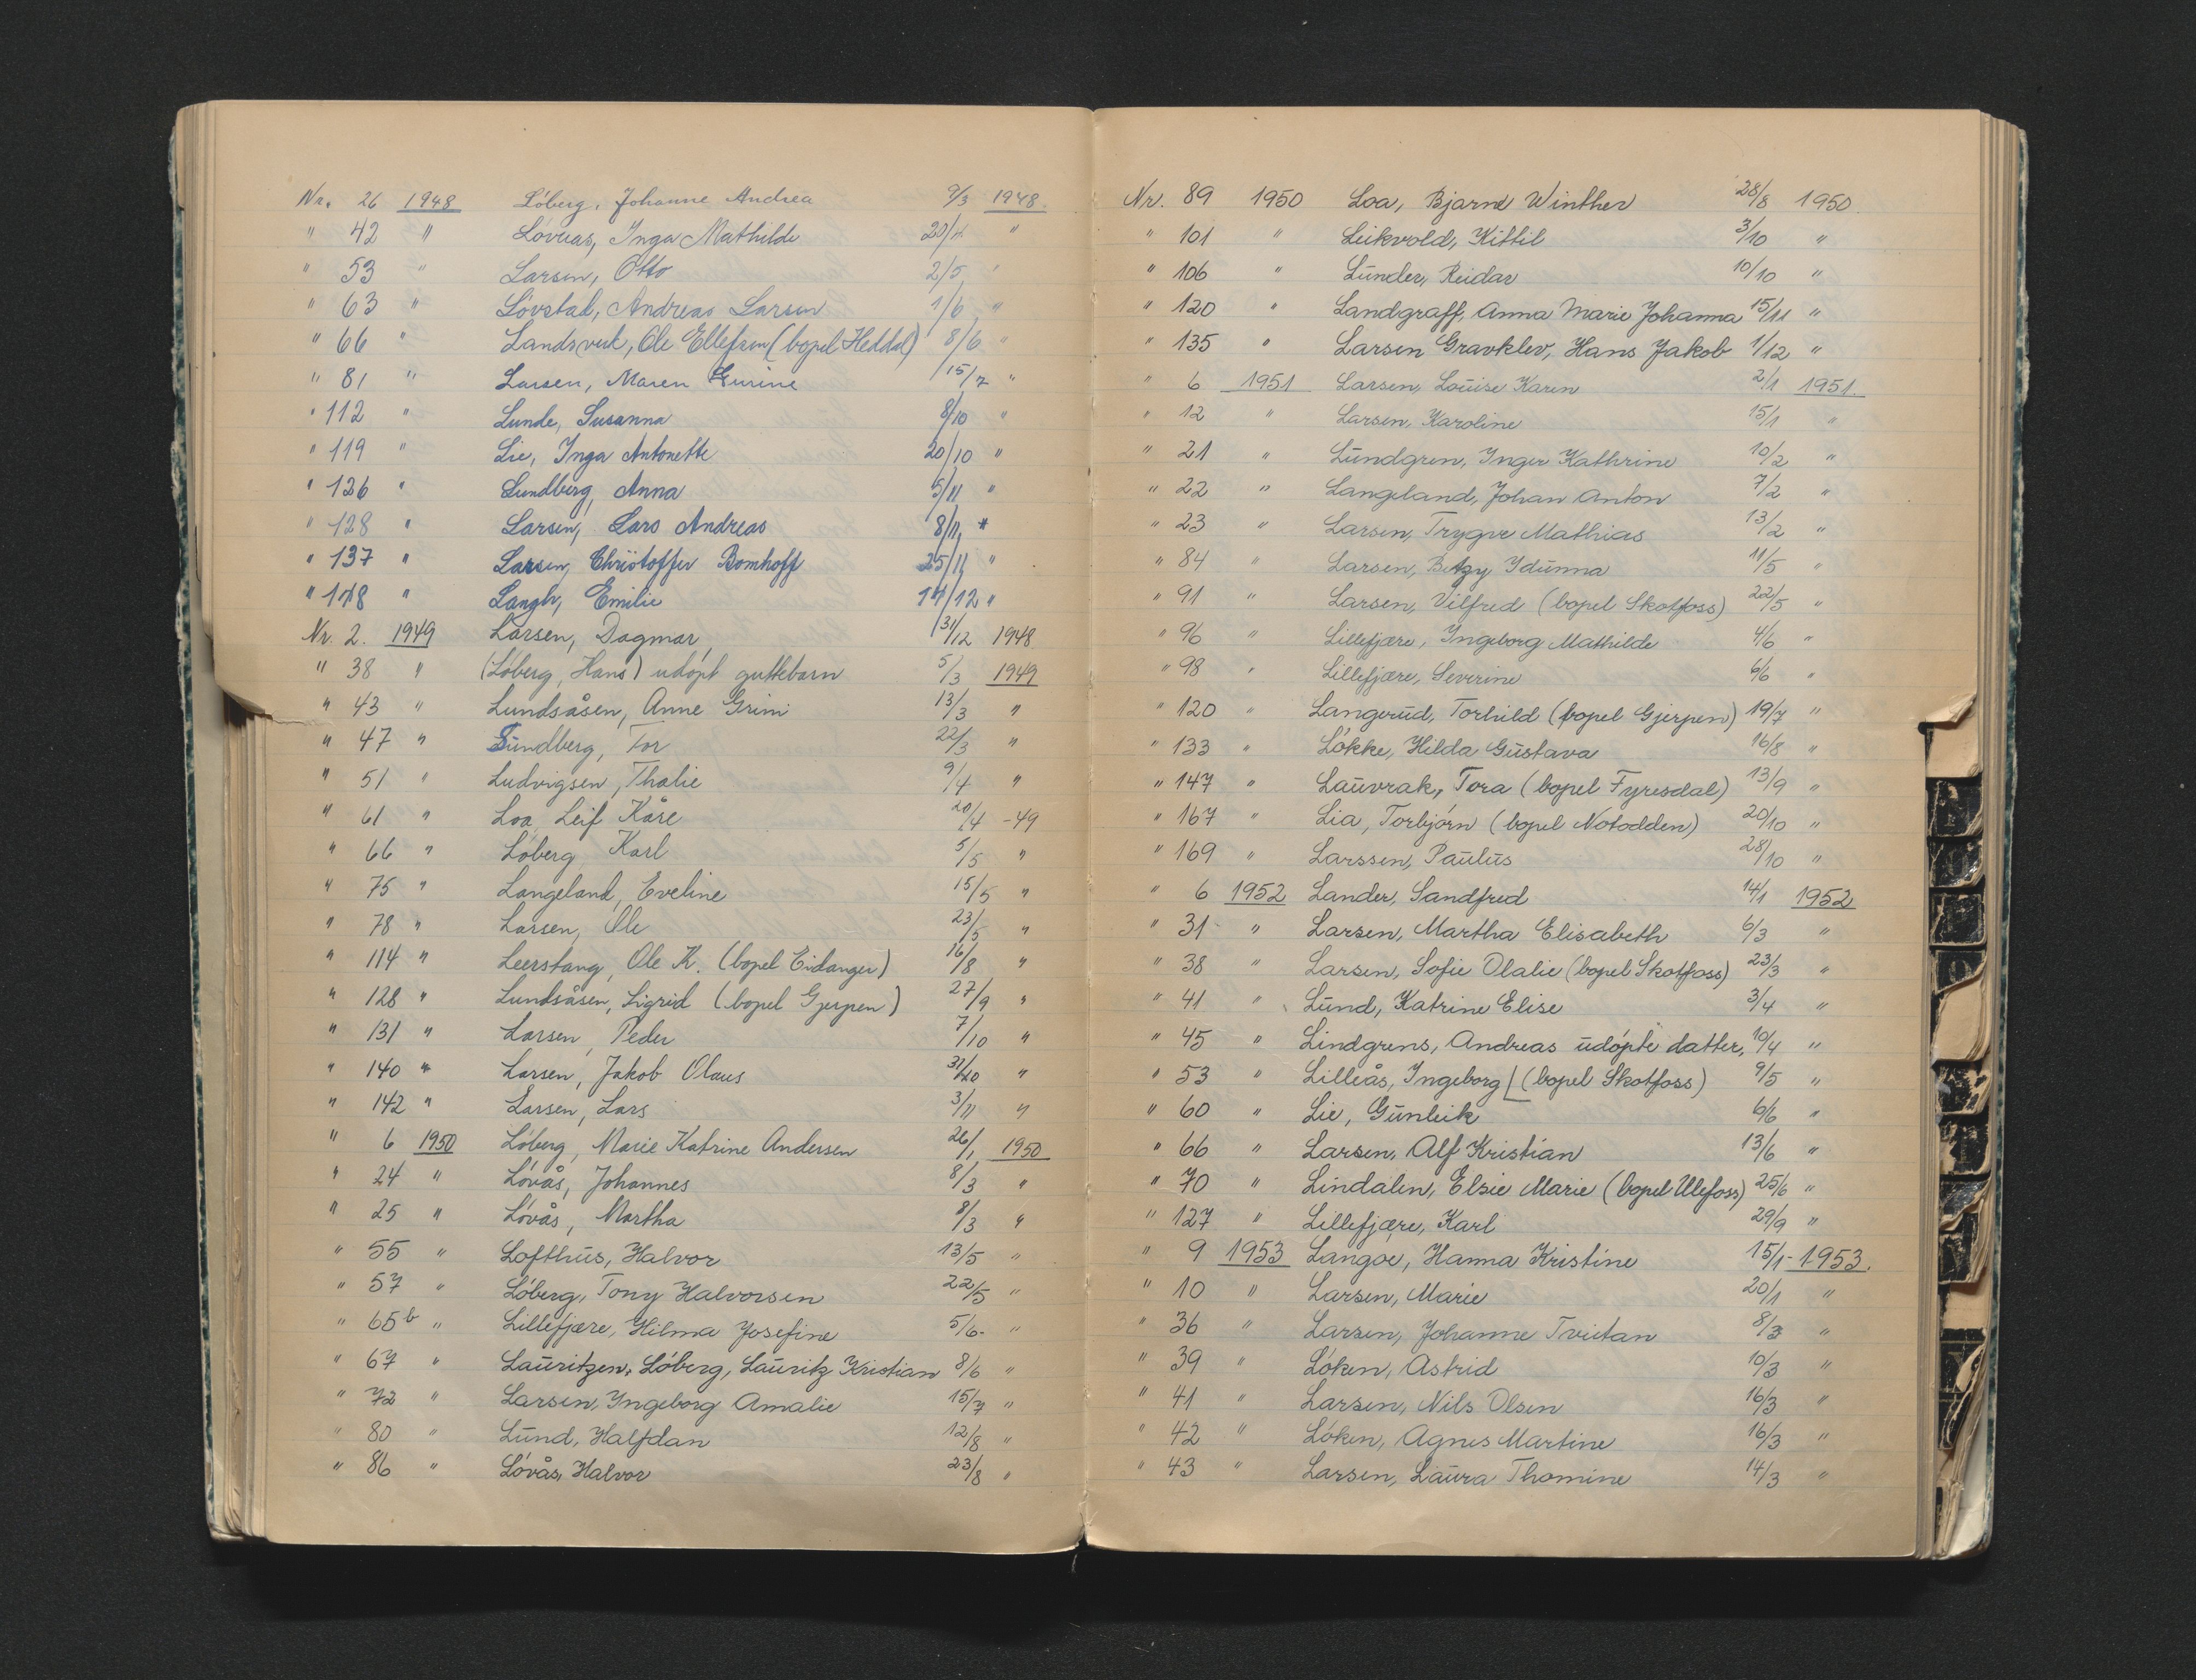 Nr. 26 1948 Löberg, Johanne Andrea 9/3 1948.
" 42 " Löveias, Inga Mathilde 20/4 "
" 53 " Larsen, Otto 2/5 "
" 63 " Lövstal, Andreas Larsen 1/6 "
" 66 " Landsverk, Ole Ellefsen (bopel Heddal) 8/6 "
" 81 " Larsen, Maren Gurine 15/7 "
" 112 " Lunde, Susanna 8/10 "
" 119 " Lie, Inga Antonette 20/10 "
" 126 " Lundberg, Anna 5/11 "
" 128 " Larsen, Lars Andreas 8/11 "
" 137 " Larsen, Christoffer Bomhoff 25/11 "
" 148 " Langh, Emilie 14/12 "
Nr. 2. 1949 Larsen, Dagmar, 31/12 1948
" 38 " (Löberg, Hans) udöpt guttebarn 5/3 1949
" 43 " Lundsåsen, Anne Grim 13/3 "
" 47 " Sundberg, Tor 22/3 "
" 51 " Ludvigsen, Thalie 9/4 "
" 61 " Loa, Leif Kåre 20/4 -49
" 66 " Löberg, Karl 5/5 "
" 75 " Langeland, Eveline 15/5 "
" 78 " Larsen, Ole 23/5 "
" 114 " Leerstang, Ole K. (bopel Eidanger) 16/8 "
" 128 " Lundsåsen, Sigrid (bopel Gjerpen) 27/9 "
" 131 " Larsen, Peder 7/10 "
" 140 " Larsen, Jakob Olaus 31/10 "
" 142 " Larsen, Lars 3/11 "
" 6 1950 Löberg, Marie Katrine Andersen 26/1 1950
" 24 " Lövås, Johannes 8/3 "
" 25 " Lövås, Martha 8/3 "
" 55 " Lofthus, Halvor 13/5 "
" 57 " Löberg, Tony Halvorsen 22/5 "
" 65b " Lillefjære, Hilma Josefine 5/6- "
" 67 " Lauritzen, Löberg, Lauritz Kristian 8/6 "
" 72 " Larsen, Ingeborg Amalie 15/7 "
" 80 " Lund, Halfdan 12/8 "
" 86 " Lövås, Halvor 23/8 "
Nr. 89 1950 Loa, Bjarne Winther 28/8 1950.
" 101 " Leikvold, Kittil 3/10 "
" 106 " Lunder, Reidar 10/10 "
" 120 " Landgraff, Anna Marie Johanna 15/11 "
" 135 " Larsen Gravklev, Hans Jakob 1/12 "
" 6 1951 Larsen, Louise Karen 2/1 1951.
" 12 " Larsen, Karoline 15/1 "
" 21 " Lundgren, Inger Kathrine 10/2 "
" 22 " Langeland, Johan Anton 7/2 "
" 23 " Larsen, Trygve Mathias 13/2 "
" 84 " Larsen, Betzy Idunna 11/5 "
" 91 " Larsen, Vilfred (bopel Skotfoss) 22/5 "
" 96 " Lillefjære, Ingeborg Mathilde 4/6 "
" 98 " Lillefjære, Severine 6/6 "
" 120 " Langerud, Torhild (bopel Gjerpen) 19/7 "
" 133 " Lökke, Hilda Gustava 16/8 "
" 147 " Lauvrak, Tora (bopel Fyresdal) 13/9 "
" 167 " Lia, Torbjörn (bopel Notodden) 20/10 "
" 169 " Larssen, Paulus 28/10 "
" 6 1952 Lander, Sandfred 14/1 1952
" 31 " Larsen, Martha Elisabeth 6/3 "
" 38 " Larsen, Sofie Olalie (bopel Skotfoss) 23/3 "
" 41 " Lund, Katrine Elise 3/4 "
" 45 " Lindgrens, Andreas udöpte datter, 10/4 "
" 53 " Lilleås, Ingeborg (bopel Skotfoss) 9/5 "
" 60 " Lie, Gunleik 6/6 "
" 66 " Larsen, Alf Kristian 13/6 "
" 70 " Lindalen, Elsie Marie (bopel Ulefoss) 25/6 "
" 127 " Lillefjære, Karl 29/9 "
" 9 1953 Langoe, Hanna Kristine 15/1-1953.
" 10 " Larsen, Marie 20/1 "
" 36 " Larsen, Johanne Tvietan 8/3 "
" 39 " Löken, Astrid 10/3 "
" 41 " Larsen, Nils Olsen 16/3 "
" 42 " Löken, Agnes Martine 16/3 "
" 43 " Larsen, Laura Thomine 14/3 "